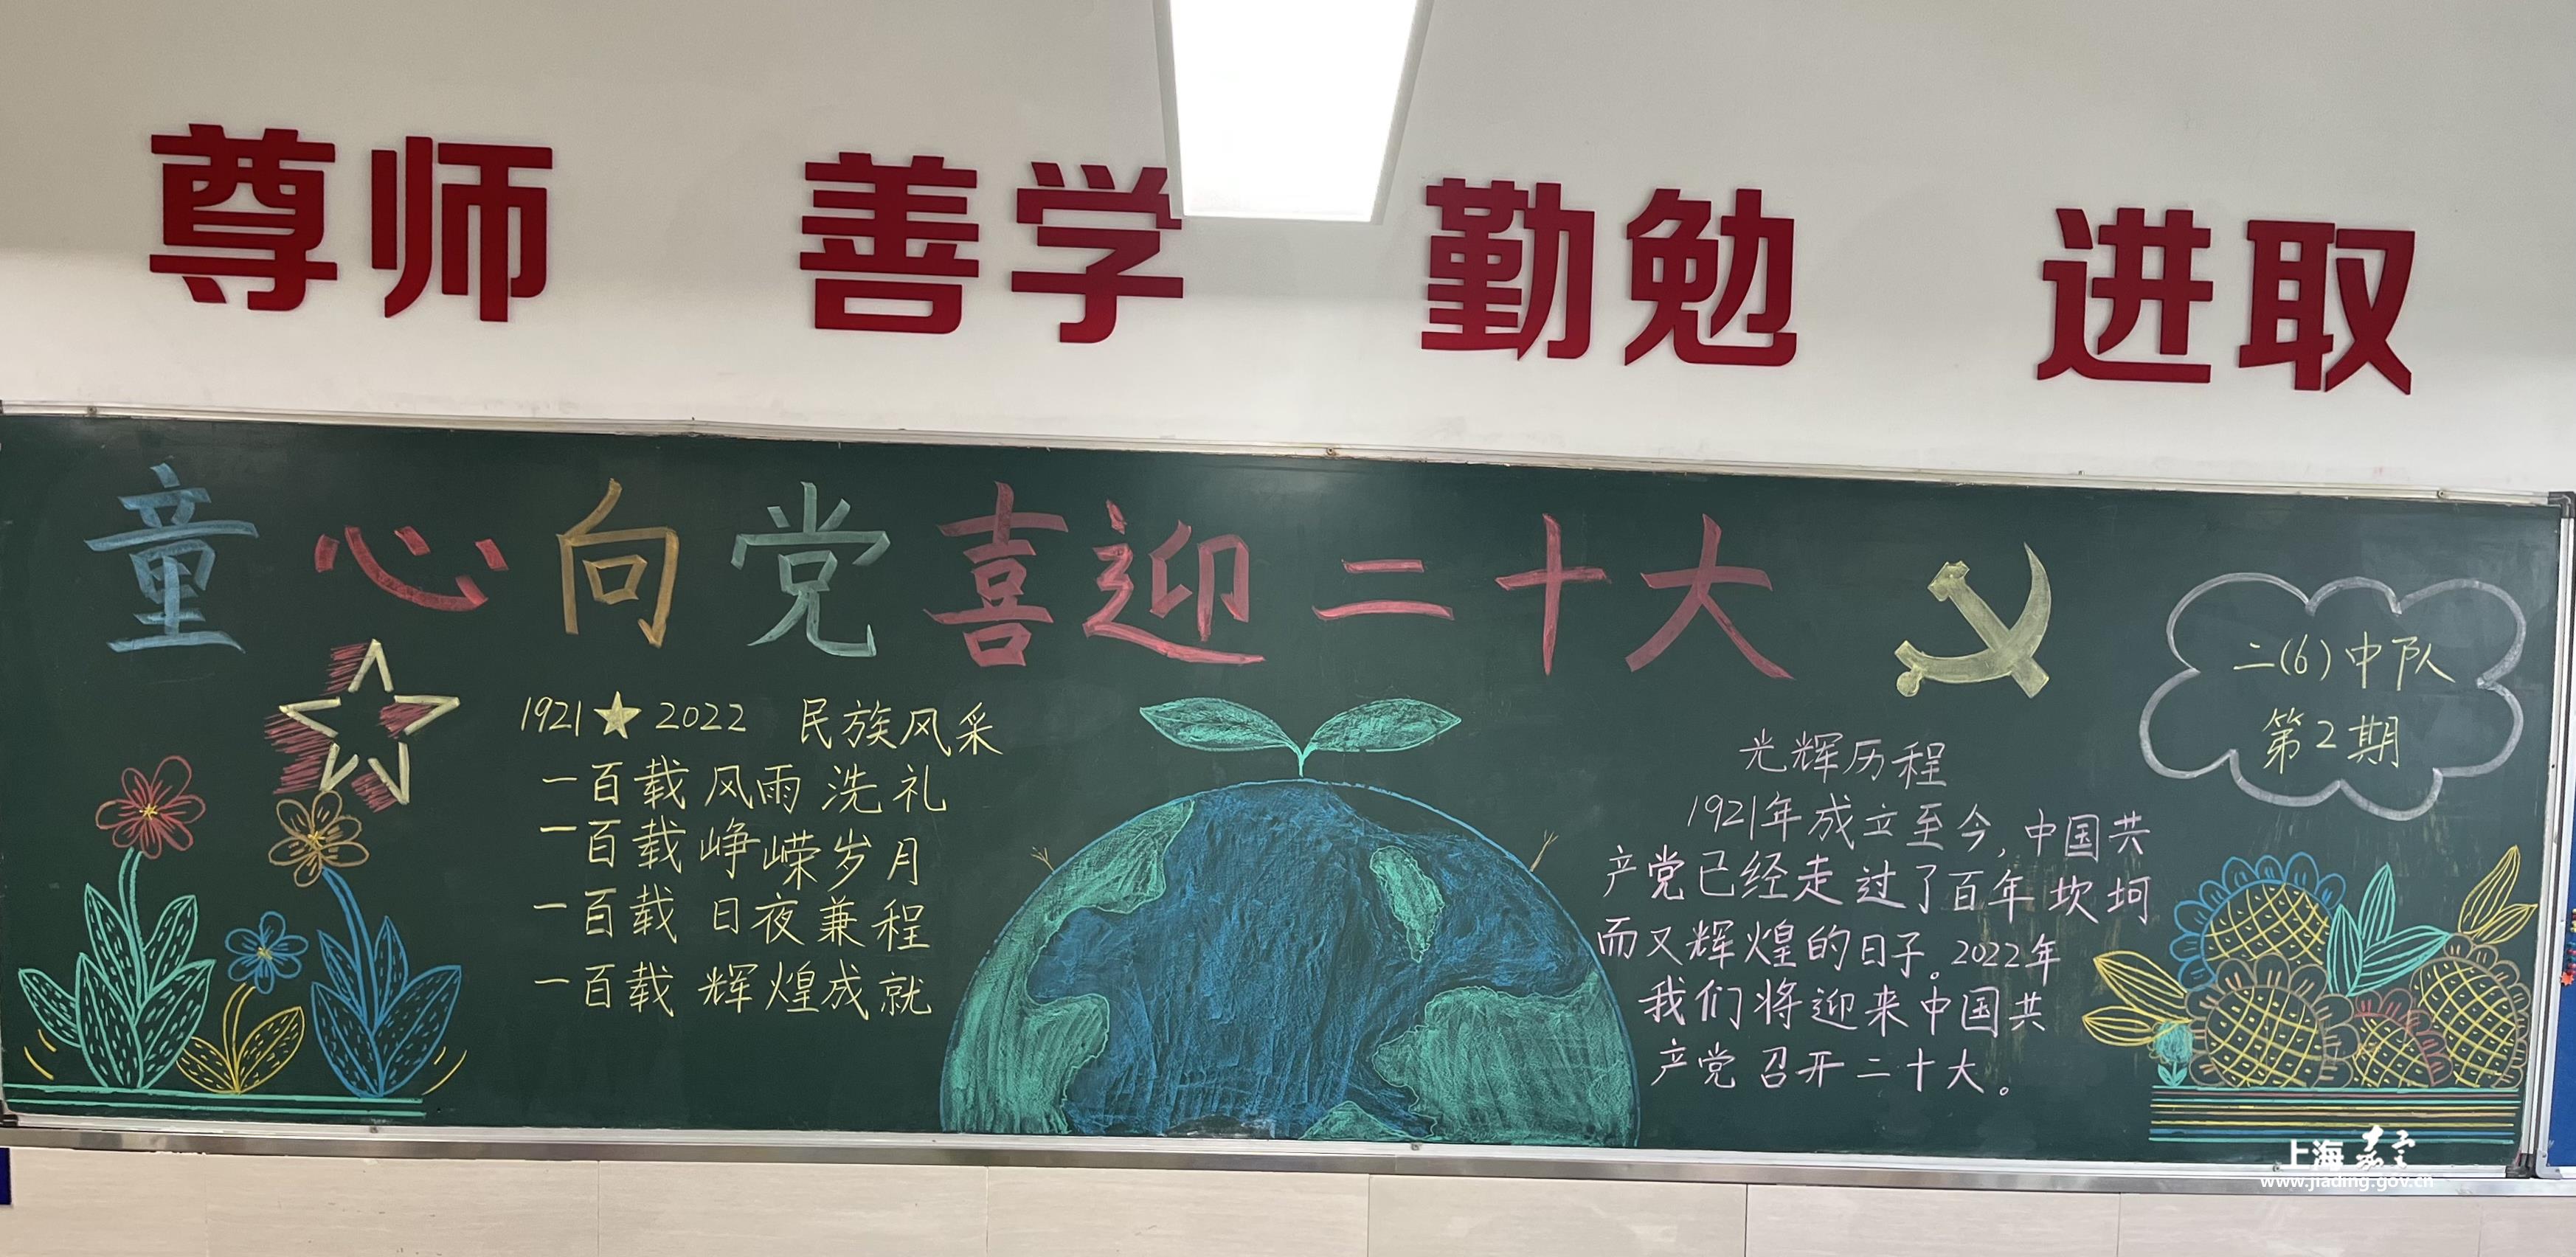 尊师 善学 勤勉 进取
童心向党喜迎二十大
1921★2022 民族风采
一百载风雨洗礼
一百载峥嵘岁月
一百载 日夜兼程
一百载 辉煌成就
光辉历程
1921年成立至今,中国共
产党已经走过了百年坎坷
而又辉煌的日子。2022年
我们将迎来中国共
产党召开二十大。
二(6)中队
第2期
上海嘉定
www.jiading.gov.cn